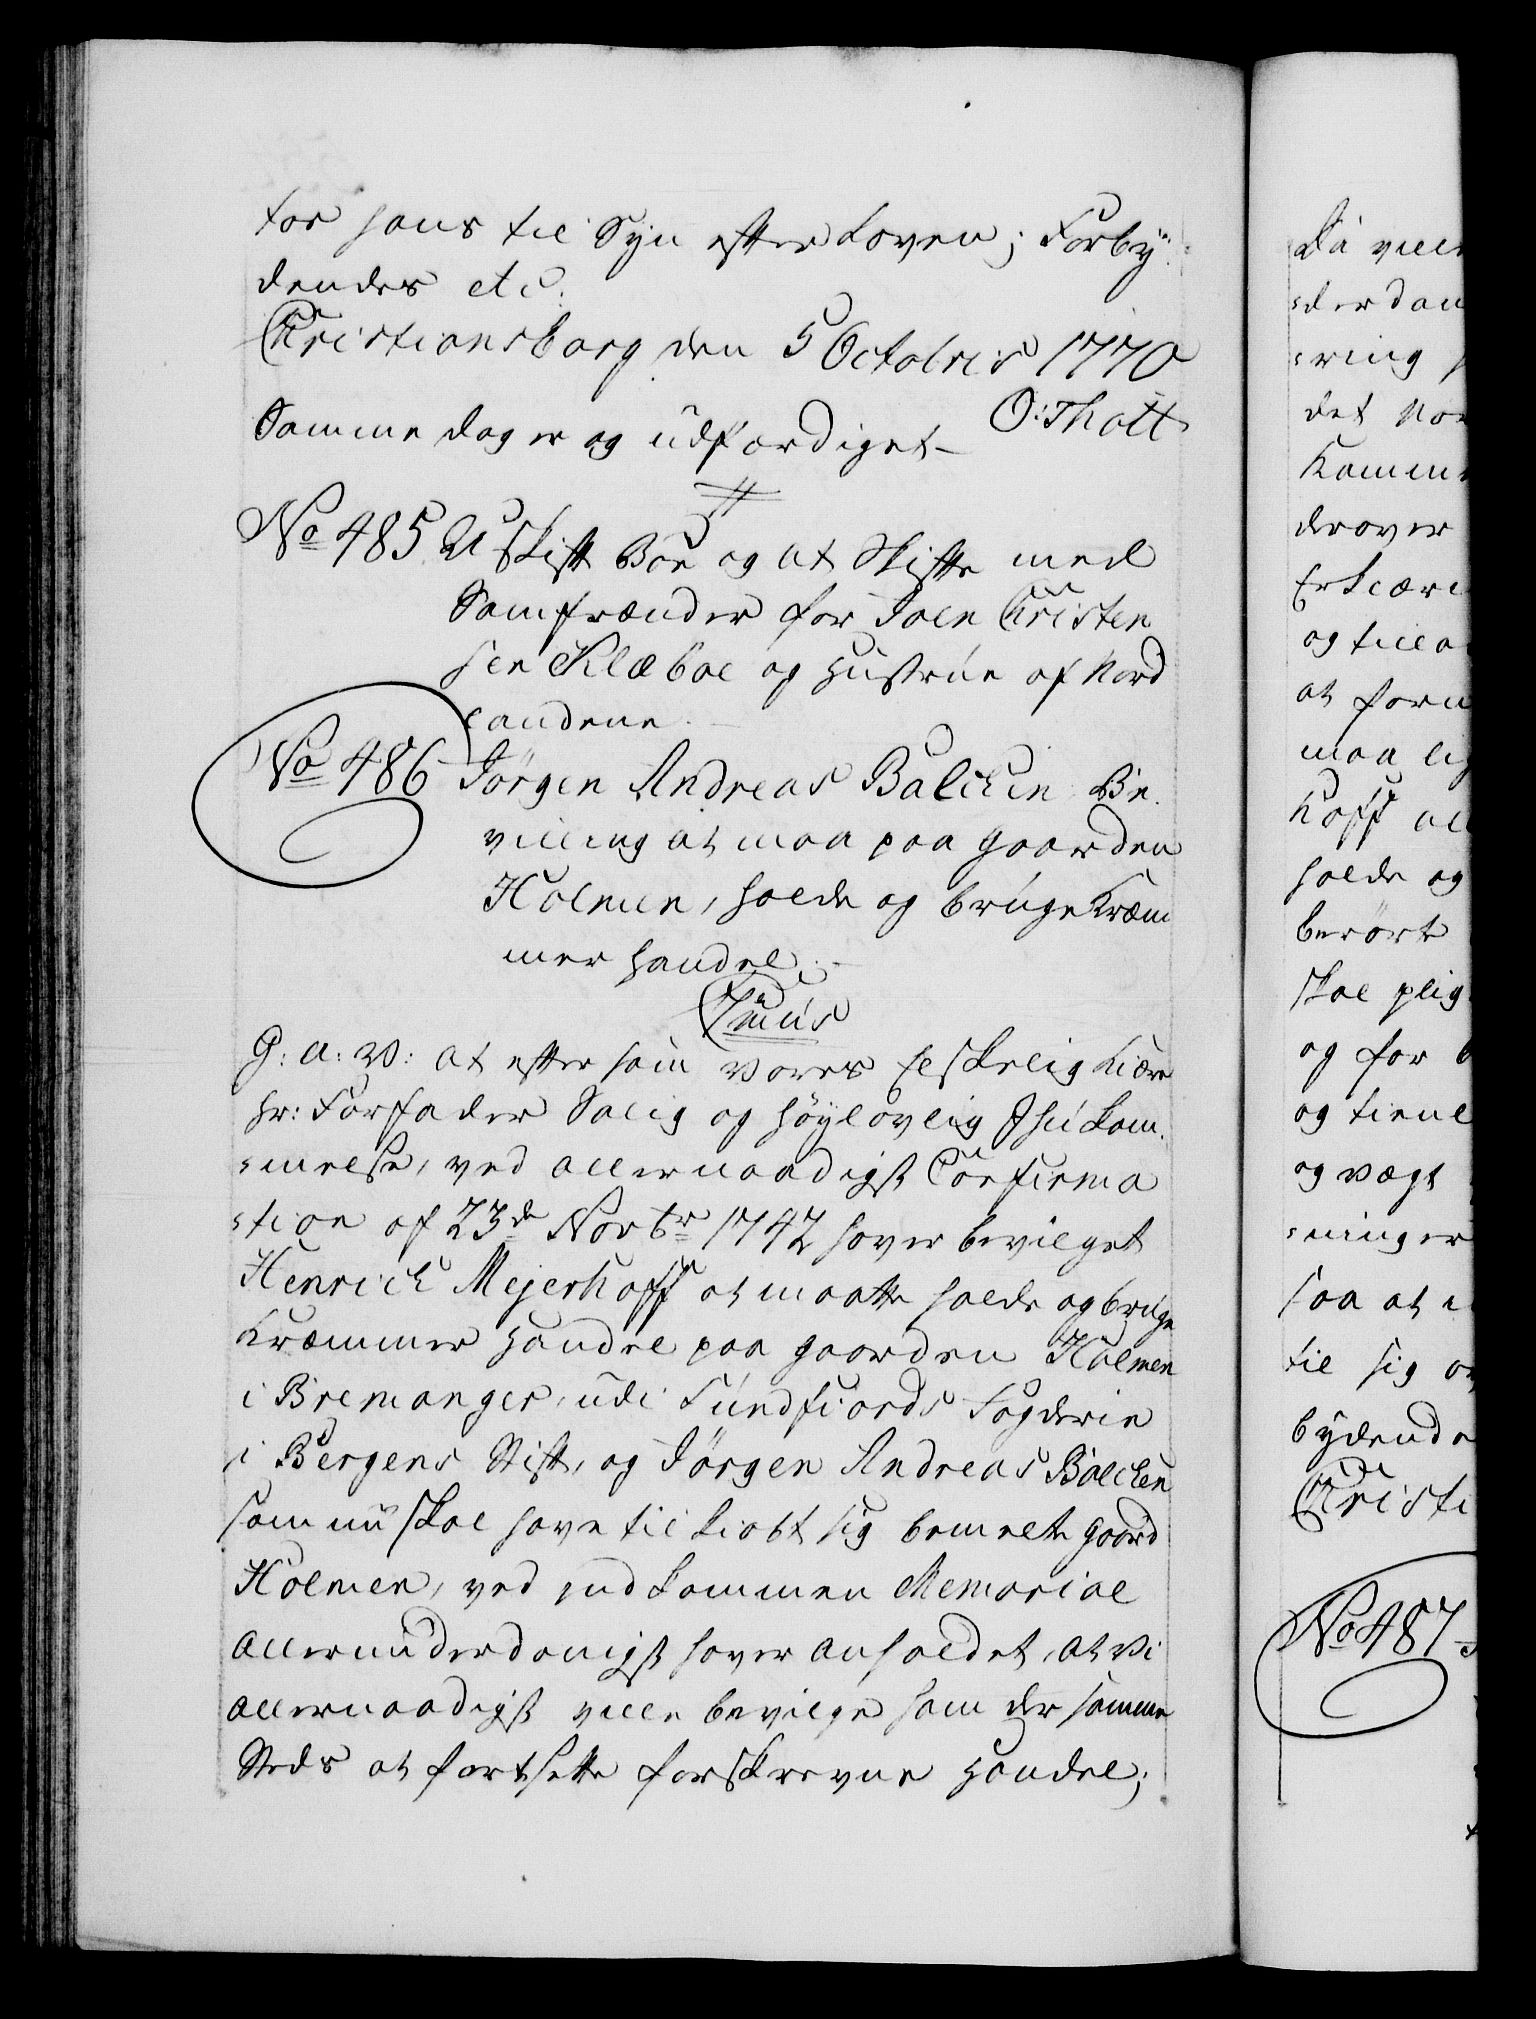 tor hans til Syn efter Loven; Forby-
dendes etc.
Christiansborg den 5 Octobris 1770
O: Thott
Samme dag er og udfærdiget
No 485 U-skift Boe og at Skifte med
Samfrænder for Joen Christen
sen Klæboe og Hustrue af Nord
landene.
No 486 Jørgen Andreas Balchen Be-
villing at maa paa Gaarden
Holmen, holde og bruge Kræm
mer Handel.
7mus
G: A: V: at eftersom Vores Elskelig Kiære
Hr: Forfader Salig og Høylovlig Ihukom-
=melse, ved allernaadigst Confirma
=tion af 23de Novbr 1742 haver bevilget
Henrich Mejerhoff at maatte holde og bruge
Kræmmer Handel paa Gaarden Holmen
i Bremanger, udi Sundfiords Fogderie
i Bergens Stift, og Jørgen Andreas Balchen
som nu skal have tilkiøbt sig bemelte Gaard
Holmen, ved indkommen Memorial
allerunderdanigst haver anholdet, at Vi
allernaadigst ville bevilge ham der samme
Steds at fortsette forskrevne Handel;
Da ville
=derdan
=ring
det No
Kamm
derover
Erklæri
og tilla
at form
maa lig
hoff al
holde og
berørt
skal plig
og for
og tien
og vægt
=ninger
saa at
til sig
bydende
Christi
No 487